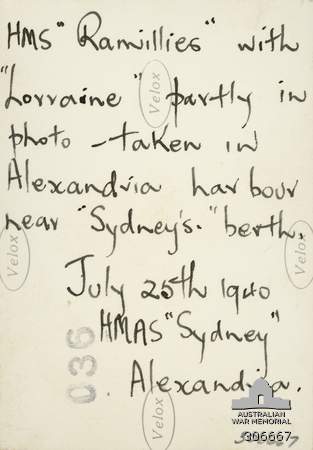 HMS "Ramillies" with
"Lorraine" partly in
photo - taken in
Alexandria harbour
near "Sydney's." berth.
July 25th 1940
HMAS "Sydney"
Alexandria.
036
Velox
Velox
Velox
Velox
AUSTRALIAN
WAR MEMORIAL
306667